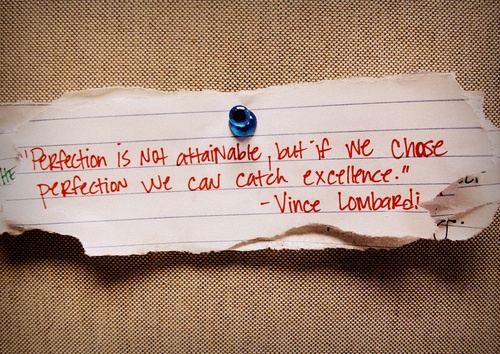 HE
"Perfection is not attainable, but if we chose
perfection we can catch excellence."
- Vince Lombardi